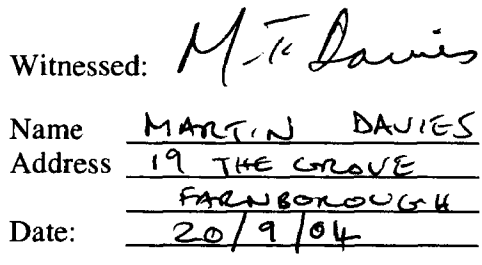 Witnessed: M. K. Davies
Name MARTIN DAVIES
Address 19 THE GROVE
FARNBOROUGH
Date: 20/9/04